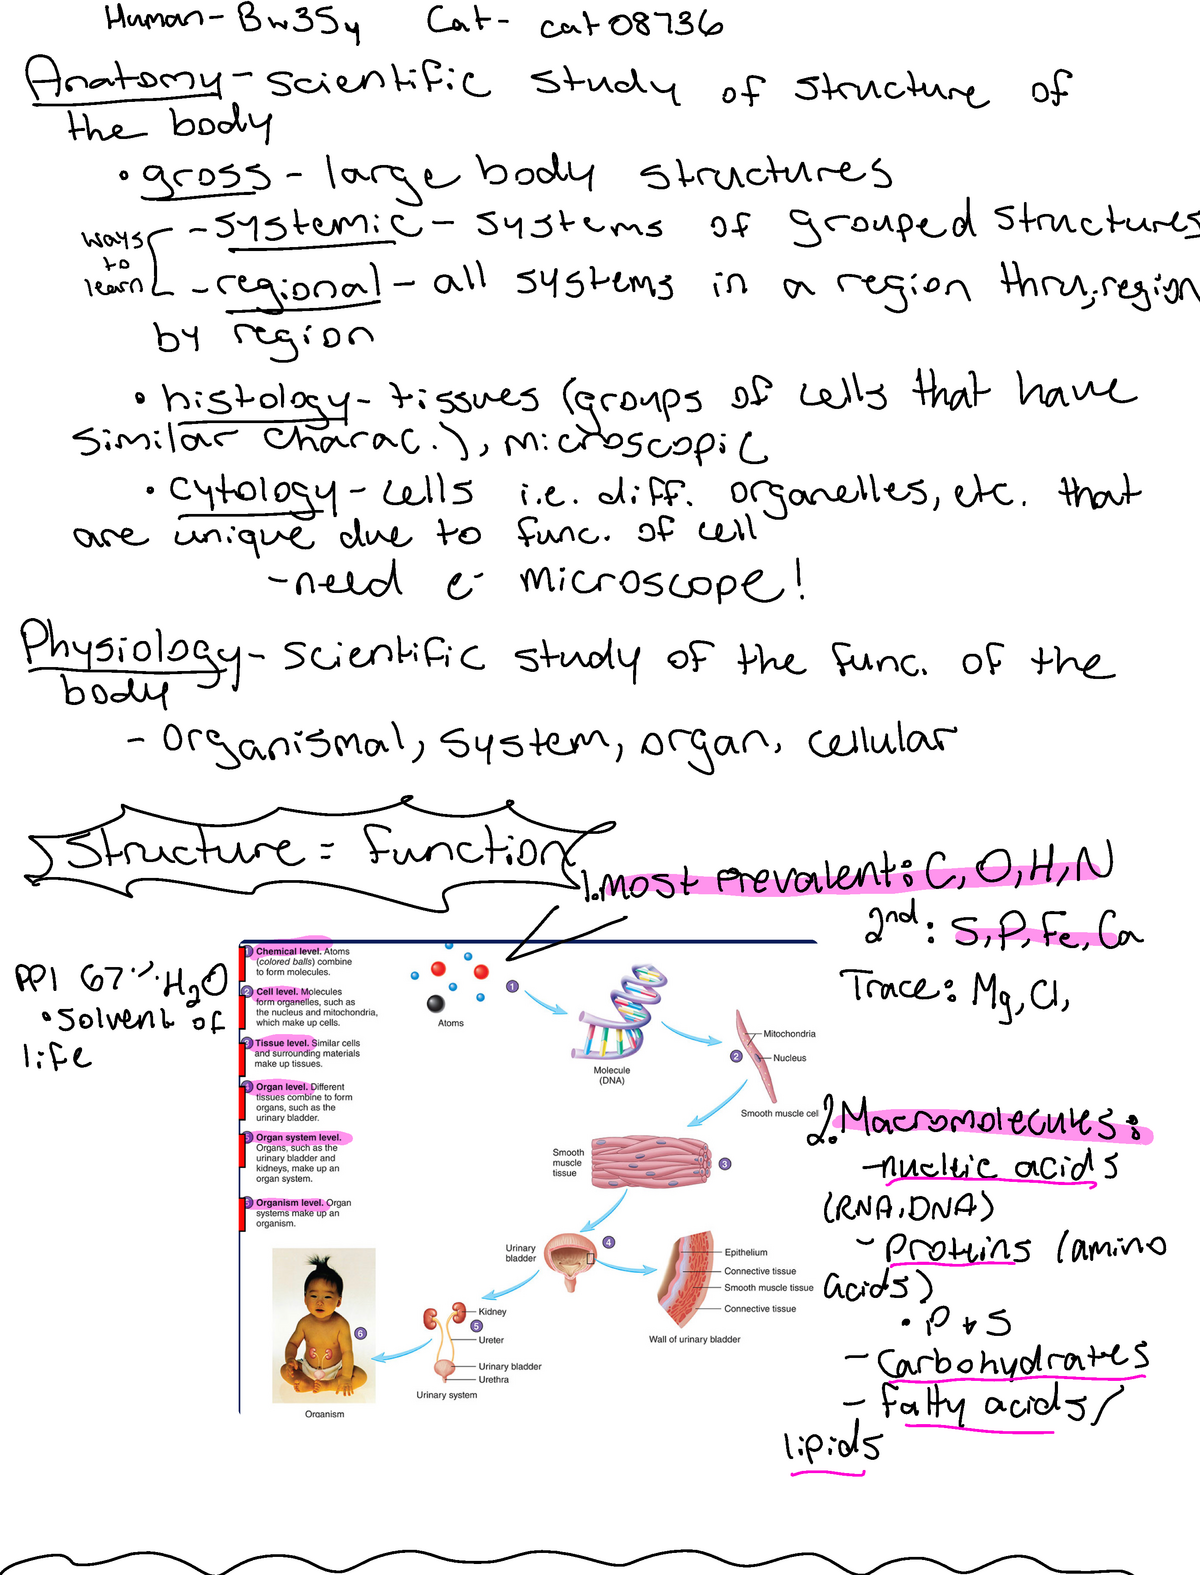 Human - Bw35y Cat - cat08736
Anatomy - scientific study of structure of
the body
• gross - large body structures
- systemic - systems of grouped structures
ways
to
learn
- regional - all systems in a region thru, region
by region
• histology - tissues (groups of cells that have
similar charac.), microscopic
• cytology - cells i.e. diff. organelles, etc. that
are unique due to func. of cell
- need e- microscope!
Physiology - scientific study of the func. of the
body
- organismal, system, organ, cellular
Structure = function
1. most prevalent: C, O, H, N
2nd: S, P, Fe, Ca
Trace: Mg, Cl,
PPl 67% H₂O
• solvent of
life
1 Chemical level. Atoms
(colored balls) combine
to form molecules.
2 Cell level. Molecules
form organelles, such as
the nucleus and mitochondria,
which make up cells.
3 Tissue level. Similar cells
and surrounding materials
make up tissues.
4 Organ level. Different
tissues combine to form
organs, such as the
urinary bladder.
5 Organ system level.
Organs, such as the
urinary bladder and
kidneys, make up an
organ system.
6 Organism level. Organ
systems make up an
organism.
Atoms
1
Molecule
(DNA)
Mitochondria
2
Nucleus
Smooth muscle cell
Smooth
muscle
tissue
3
Urinary
bladder
4
Epithelium
Connective tissue
Smooth muscle tissue
Connective tissue
Wall of urinary bladder
Kidney
5
Ureter
Urinary bladder
Urethra
Urinary system
6
Organism
2. Macromolecules:
- nucleic acids
(RNA, DNA)
- Proteins (amino
acids)
• P + S
- Carbohydrates
- fatty acids/
lipids